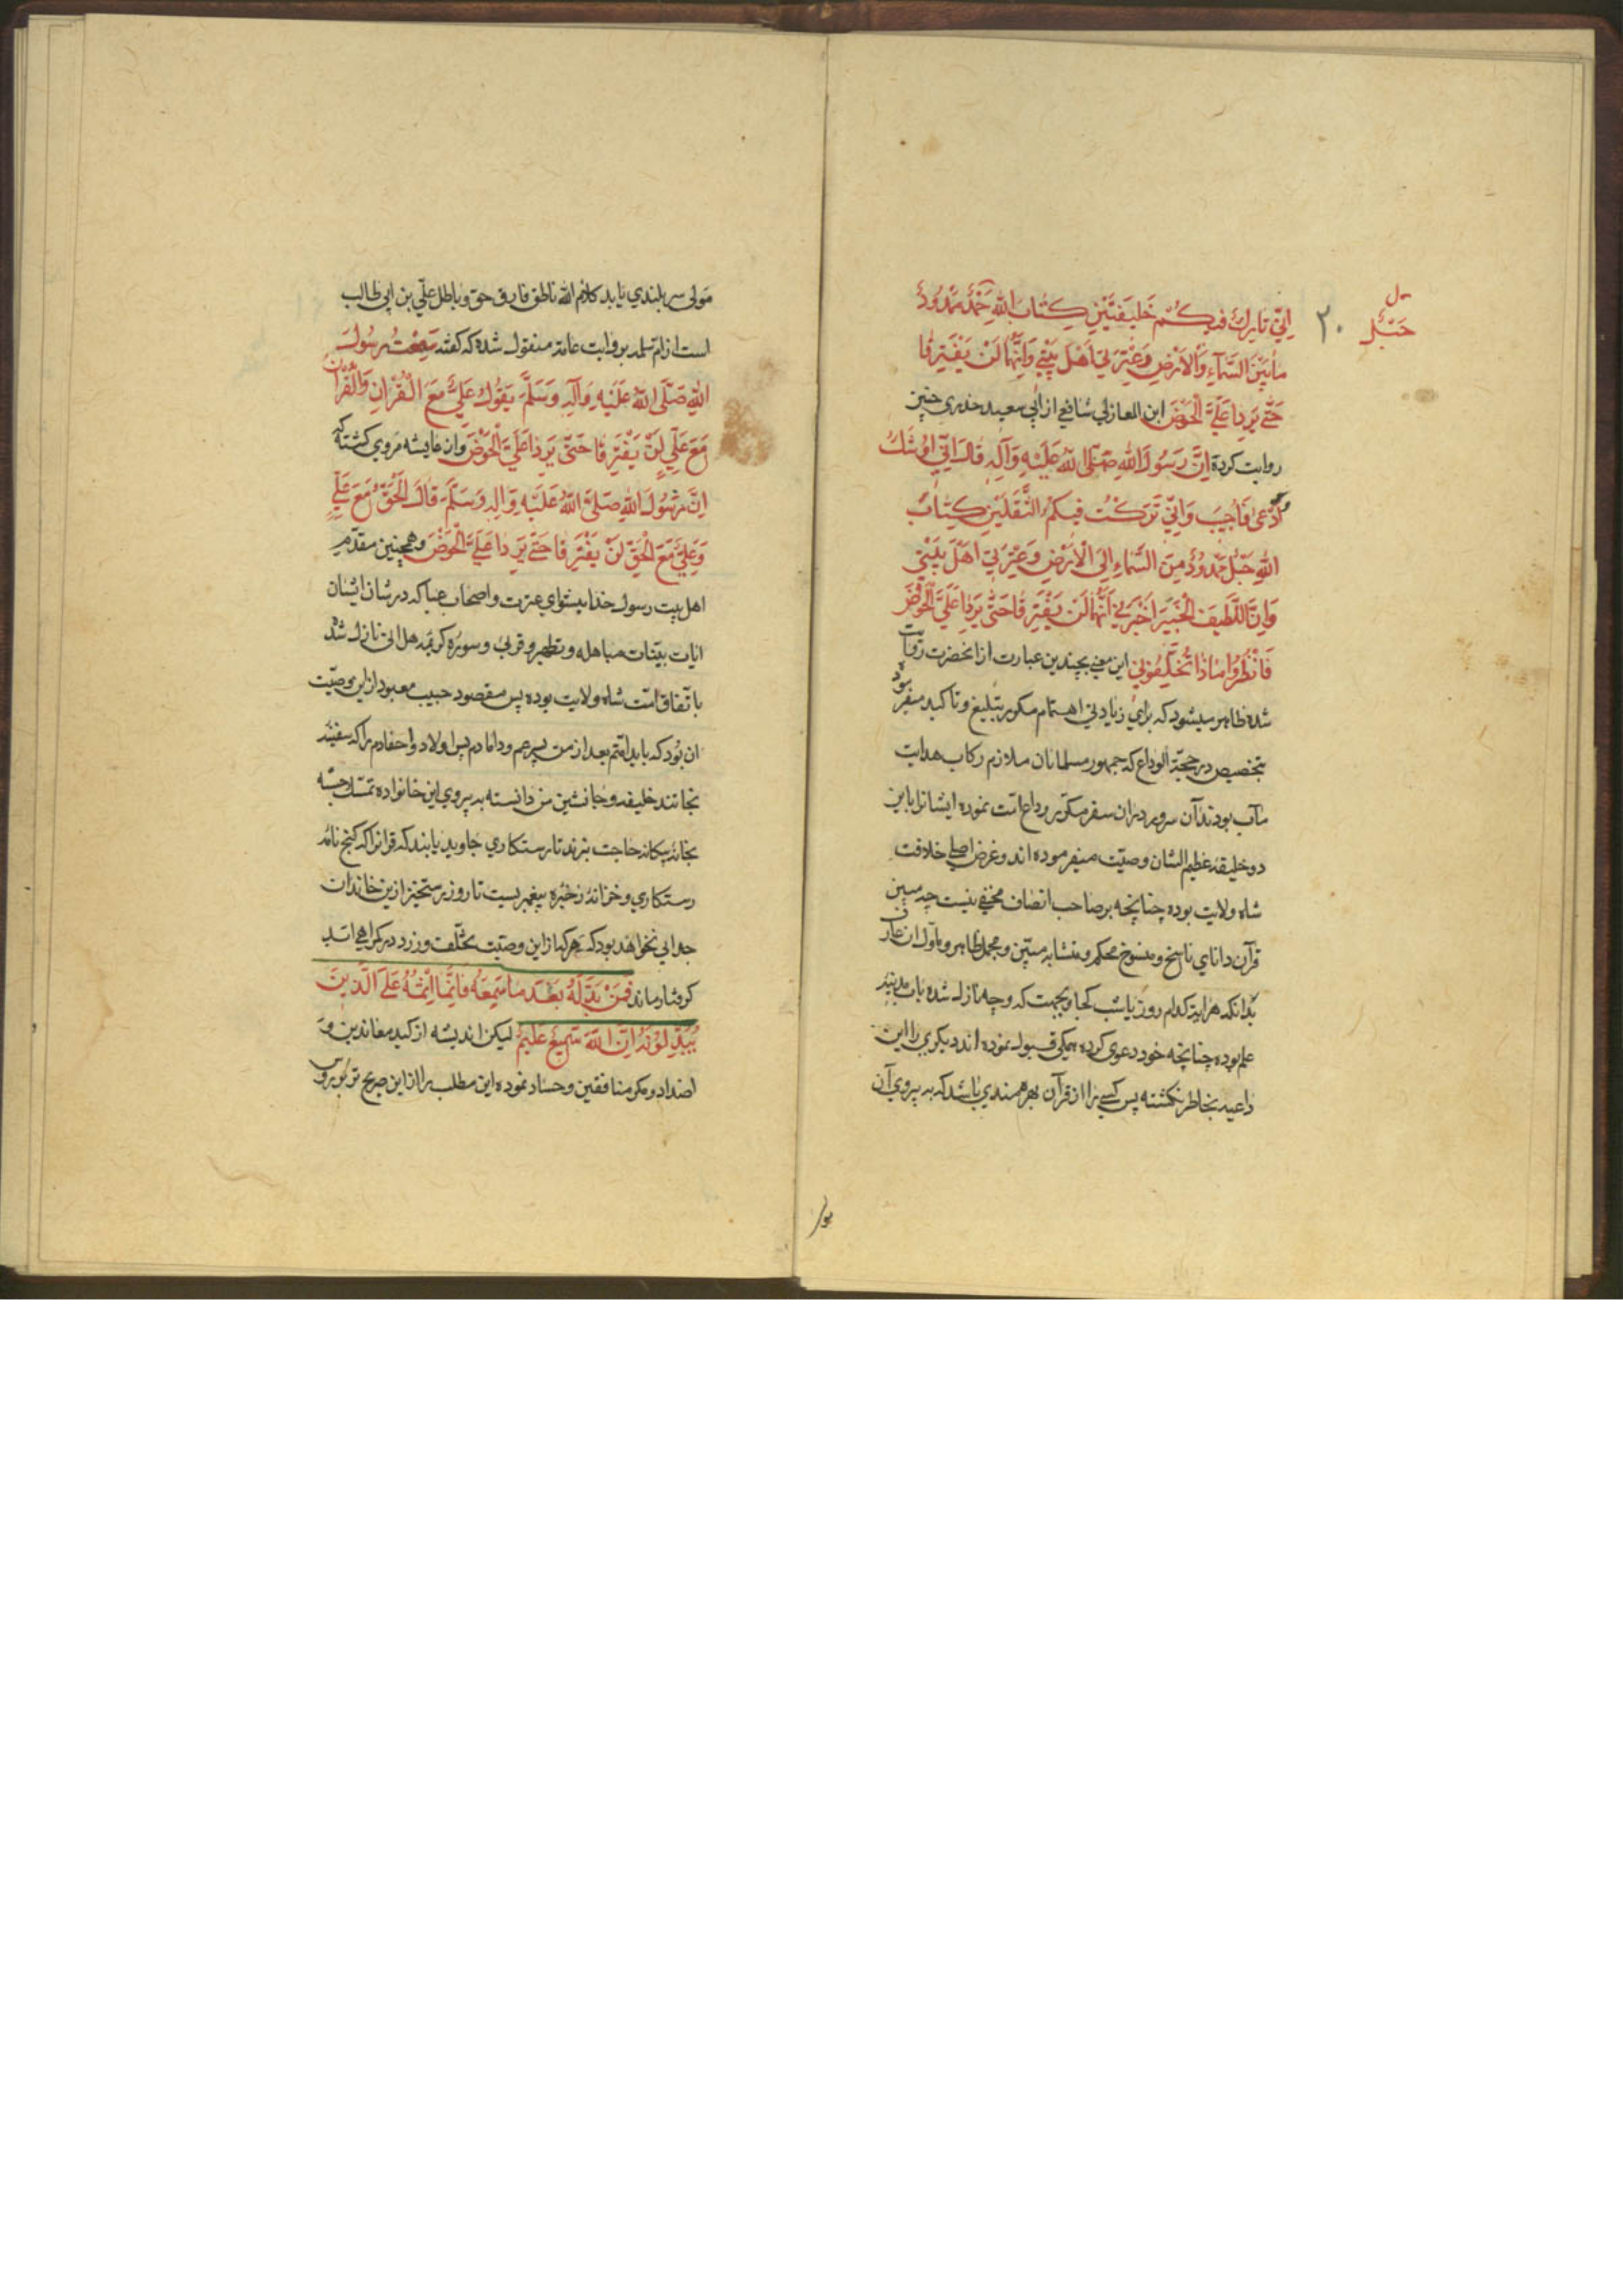 حَبْلٌ ل
٢٠
اِنّي تارِكٌ فيكُمْ خَليفَتَيْنِ كِتابَ اللهِ مَمْدُودٌ
ما بَيْنَ السَّمآءِ وَالْاَرْضِ وَعِتْرَتي اَهْلَ بَيْتي وَاِنَّهُما لَنْ يَفْتَرِقا
حَتّى يَرِدا عَلَيَّ الْحَوْضَ ابن المغازلي شافعي از ابي سعيد خدري چنين
روايت كرده اِنَّ رَسُولَ اللهِ صَلَّى اللهُ عَلَيْهِ وَآلِهِ قالَ اِنّي اُوشَكُ
اُدْعى فَاُجيبَ وَاِنّي تَرَكْتُ فيكُمُ الثَّقَلَيْنِ كِتابَ
اللهِ حَبْلٌ مَمْدُودٌ مِنَ السَّماءِ اِلَى الْاَرْضِ وَعِتْرَتي اَهْلَ بَيْتي
وَاِنَّ اللَّطيفَ الْخَبيرَ اَخْبَرَني اَنَّهُما لَنْ يَفْتَرِقا حَتّى يَرِدا عَلَيَّ الْحَوْضَ
فَانْظُرُوا ماذا تُخَلِّفُوني اين معني بچندين عبارت از انحضرت روايت
شده ظاهر ميشود كه براي زيادتي اهتمام مكرر بتبليغ و تاكيد ميفرمود
بتخصيص در حجّة الوداع كه جمهور مسلمانان ملازم ركاب هدايت
مآب بودند آن سرور دران سفر مكرّر وداع امّت نموده ايشانرا باين
دو خليفهٔ عظيم الشان وصيّت ميفرموده اند و غرض اصلي خلافت
شاه ولايت بوده چنانچه بر صاحب انصاف مخفي نيست چه مبين
قرآن داناي ناسخ و منسوخ محكم و متشابه مبيّن و مجمل ظاهر و ماوّل ان عارف
بدانكه هر ايه كدام روز يا شب كجا و بجهت كه و چه نازل شده باب مدينهٔ
علم بوده چنانچه خود دعوى كرده همكى قبول نموده اند ديكري را اين
داعيه بخاطر نكشته پس كسي را از قرآن بهرهمندي باشد كه به پيروي آن
مولى سر بلندي يابد كلام الله ناطق فارق حق و باطل علي بن ابي طالب
است از ام سلمه بروايت عامه منقول شده كه كفته سَمِعْتُ رَسُولَ
اللهِ صَلَّى اللهُ عَلَيْهِ وَآلِهِ وَسَلَّمَ يَقُولُ عَلِيٌّ مَعَ الْقُرْانِ وَالْقُرْانُ
مَعَ عَلِيٍّ لَنْ يَفْتَرِقا حَتّى يَرِدا عَلَيَّ الْحَوْضَ واز عايشه مروي كشته كه
اِنَّ رَسُولَ اللهِ صَلَّى اللهُ عَلَيْهِ وَالِهِ وَسَلَّمَ قالَ الْحَقُّ مَعَ عَلِيٍّ
وَعَلِيٌّ مَعَ الْحَقِّ لَنْ يَفْتَرِقا حَتّى يَرِدا عَلَيَّ الْحَوْضَ وهمچنين مقدّم
اهل بيت رسول خدا پيشواي عترت و اصحاب عبا كه در شان ايشان
ايات بيّنات مباهله و تطهير و قربى و سورهٔ كريمهٔ هل اتى نازل شده
باتّفاق امّت شاه ولايت بوده پس مقصود حبيب معبود از اين وصيّت
ان بود كه بايد امّتم بعد از من پسر عم و دامادم پس اولاد و احفادم را كه سفينهٔ
نجاتند خليفه و جانشين من دانسته به پيروي اين خانواده تمسّك جسته
بخانهٔ بيكانه حاجت نبرند تا رستكاري جاويد يابند كه قرانرا كه كنج نامهٔ
رستكاري و خزانهٔ ذخيرهٔ پيغمبريست تا روز رستخيز ازين خاندان
جدايي نخواهد بود كه هر كه از اين وصيّت تخلّف ورزد در كمراهي ابد
كرفتار ماند فَمَنْ بَدَّلَهُ بَعْدَ ما سَمِعَهُ فَاِنَّما اِثْمُهُ عَلَى الَّذينَ
يُبَدِّلُونَهُ اِنَّ اللهَ سَميعٌ عَليمٌ ليكن انديشه از كيد معاندين و
اضداد و مكر منافقين و حساد نموده اين مطلب را از اين صريح تر